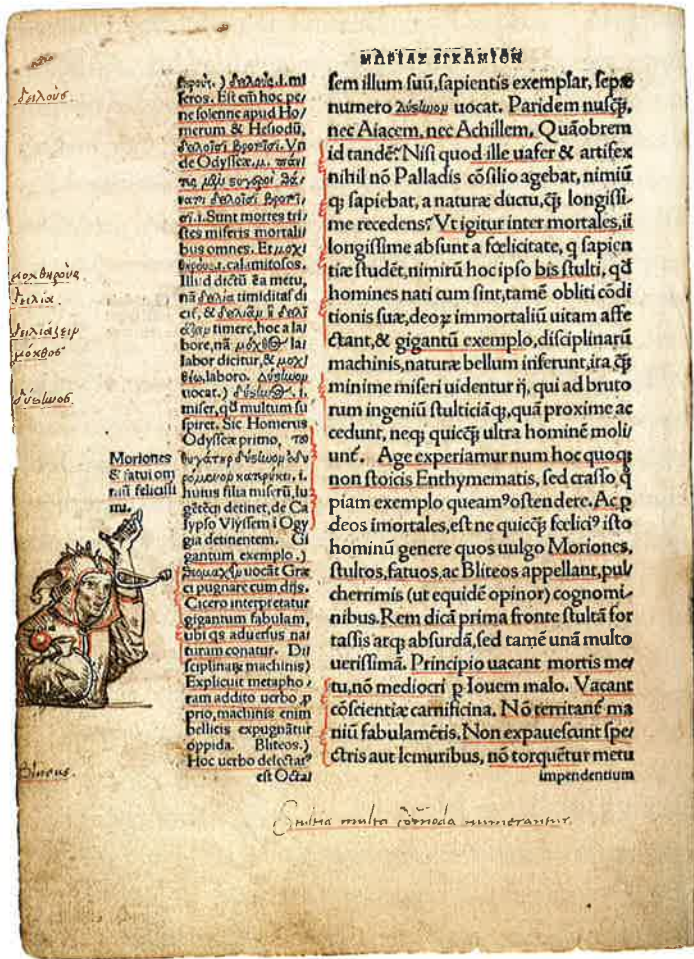 ΜΩΡΙΑΣ ΕΓΚΩΜΙΟΝ
δειλούσ.
μοχθηρούς.
δειλία.
δειλιάζειν
μόχθοσ
δύςηνοσ.
Moriones
& fatui om
niū felicissi
mi.
βροτούς.) δειλούς.i.mi
seros. Est em̄ hoc pe/
ne solenne apud Ho/
merum & Hesiodū,
δειλοῖσι βροτοῖσι. Vn
de Odysseæ.μ.
σι.i. Sunt mortes tri/
stes miseris mortali/
bus omnes. Et μοχ/
θηρούς.i. calamitosos.
Illud dictū ἐa metu,
nā δειλία timiditas di
cit̄, &
timere, hoc a la/
bore, nā μόχθος la/
labor dicitur, & μοχ/
θέω, laboro. Δύςηνον
uocat.) δύςηνος. i.
miser, qđ multum su
spiret. Sic Homerus
Odysseæ primo, τοῦ
θυγάτηρ δύςηνον ὀδυ
ρόμενον κατερύκει. i.
huius filia miserū, lu
gētēq̄ detinet, de Ca
lypso Vlyssem i Ogy
gia detinentem. Gi
gantum exemplo.)
θεομαχεῖν uocāt Græ
ci pugnare cum dijs.
Cicero interpretatur
gigantum fabulam,
ubi qs aduersus na/
turam conatur. Dis
sciplinaꝝ machinis)
Explicuit metapho/
ram addito uerbo ꝓ
prio, machinis enim
bellicis expugnātur
oppida. Bliteos.)
Hoc uerbo delectat᷑
est Octa/
sem illum suū, sapientis exemplar, sepæ
numero δύςηνον uocat. Paridem nusq̄,
nec Aiacem, nec Achillem. Quāobrem
id tandē? Nisi quod ille uafer & artifex
nihil nō Palladis cōsilio agebat, nimiū
q; sapiebat, a naturæ ductu, q̄ longissi/
me recedens? Vt igitur inter mortales, ii
longissime absunt a fœlicitate, q sapien
tiæ studēt, nimirū hoc ipso bis stulti, qđ
homines nati cum sint, tamē obliti cōdi
tionis suæ, deoꝝ immortaliū uitam affe
ctant, & gigantū exemplo, disciplinarū
machinis, naturæ bellum inferunt, ita q̄
minime miseri uidentur ij, qui ad bruto
rum ingeniū stulticiāq;, quā proxime ac
cedunt, neq; quicq̄ ultra hominē moli/
unt̄. Age experiamur num hoc quoq;
non stoicis Enthymematis, sed crasso q̇
piam exemplo queamꝰ ostendere. Ac ꝑ
deos imortales, est ne quicq̄ fœliciꝰ isto
hominū genere quos uulgo Moriones,
stultos, fatuos, ac Bliteos appellant, pul/
cherrimis (ut equidē opinor) cognomi/
nibus. Rem dicā prima fronte stultā for
tassis atq; absurdā, sed tamē unā multo
uerissimā. Principio uacant mortis me/
tu, nō mediocri ꝑ Iouem malo. Vacant
cōscientiæ carnificina. Nō territant̄ ma
niū fabulamētis. Non expauescunt spe/
ctris aut lemuribus, nō torquētur metu
impendentium
Stultitia multa cōmoda numerantur.